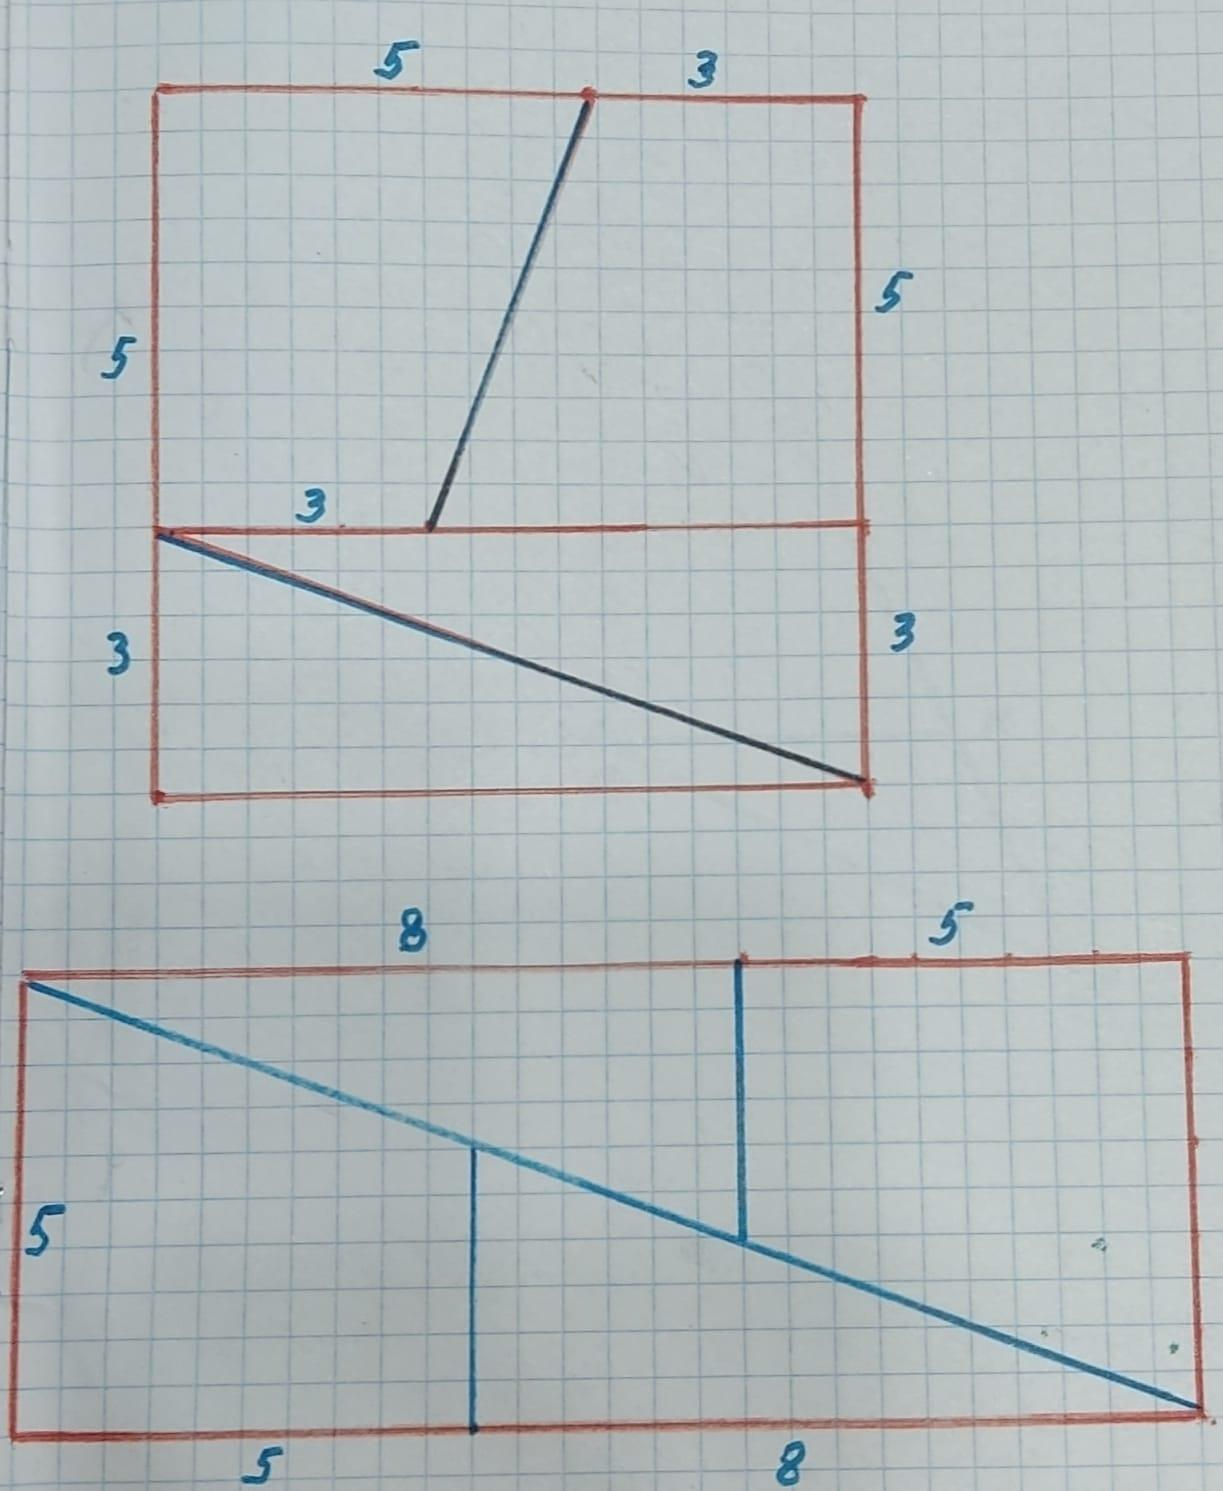 5 3
5
5
3
3
3
8 5
5
5 8